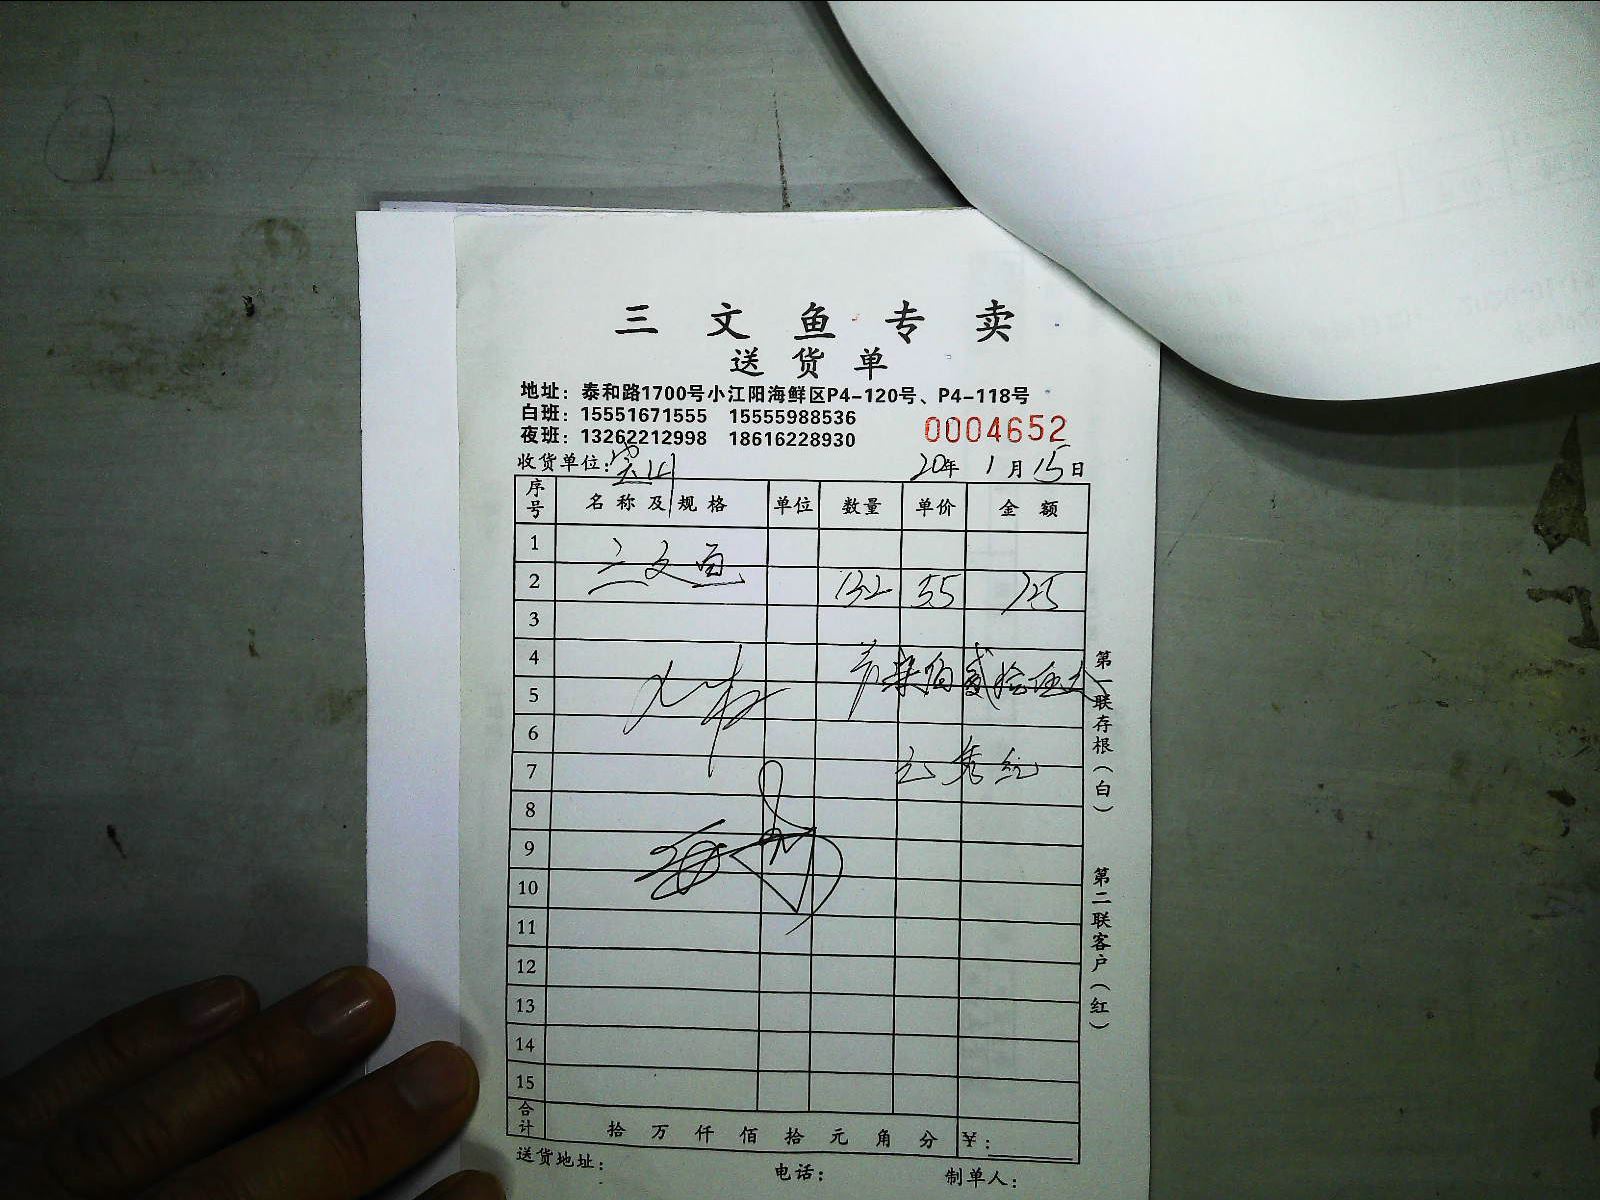 三文鱼专卖
送货单
地址：泰和路1700号小江阳海鲜区P4-120号、P4-118号
白班：15551671555 15555988536
夜班：13262212998 18616228930
0004652
收货单位：
20年 1月15日
序号 名称及规格 单位 数量 单价 金额
1 三文鱼
2 132 55 725
3
4
柒佰贰拾伍
5
6
7
8
9
10
11
12
13
14
15
合计 拾 万 仟 佰 拾 元 角 分 ￥：
送货地址： 电话： 制单人：
第一联存根（白）
第二联客户（红）